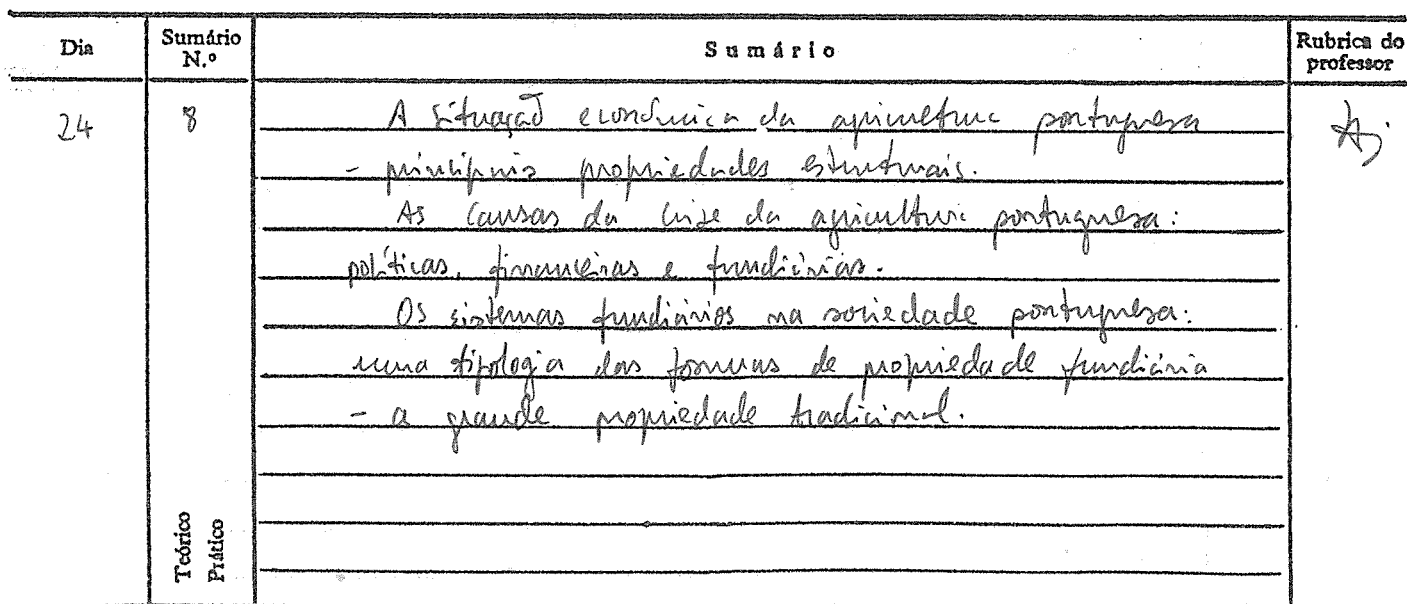 Dia Sumário N.º Sumário Rubrica do professor
24 8 A situação económica da agricultura portuguesa
- principais propriedades estruturais.
As causas da crise da agricultura portuguesa:
políticas, financeiras e fundiárias.
Os sistemas fundiários na sociedade portuguesa:
uma tipologia das formas de propriedade fundiária
- a grande propriedade tradicional.
Teórico
Prático